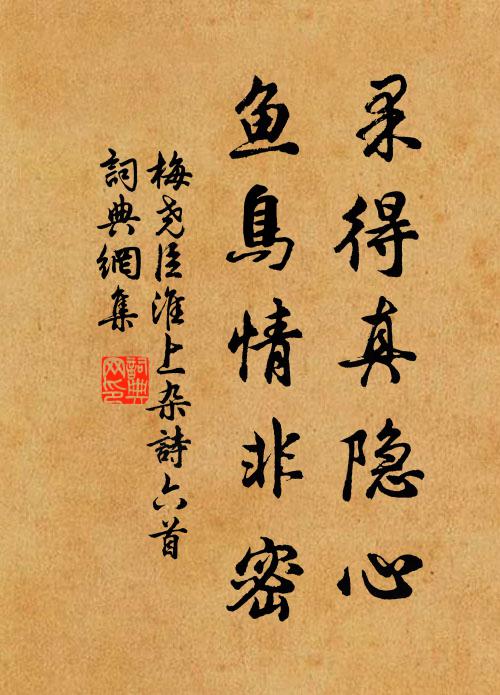 果得真隐心
鱼鸟情非密
梅尧臣淮上杂詩六首
詞典網集
詞典网印